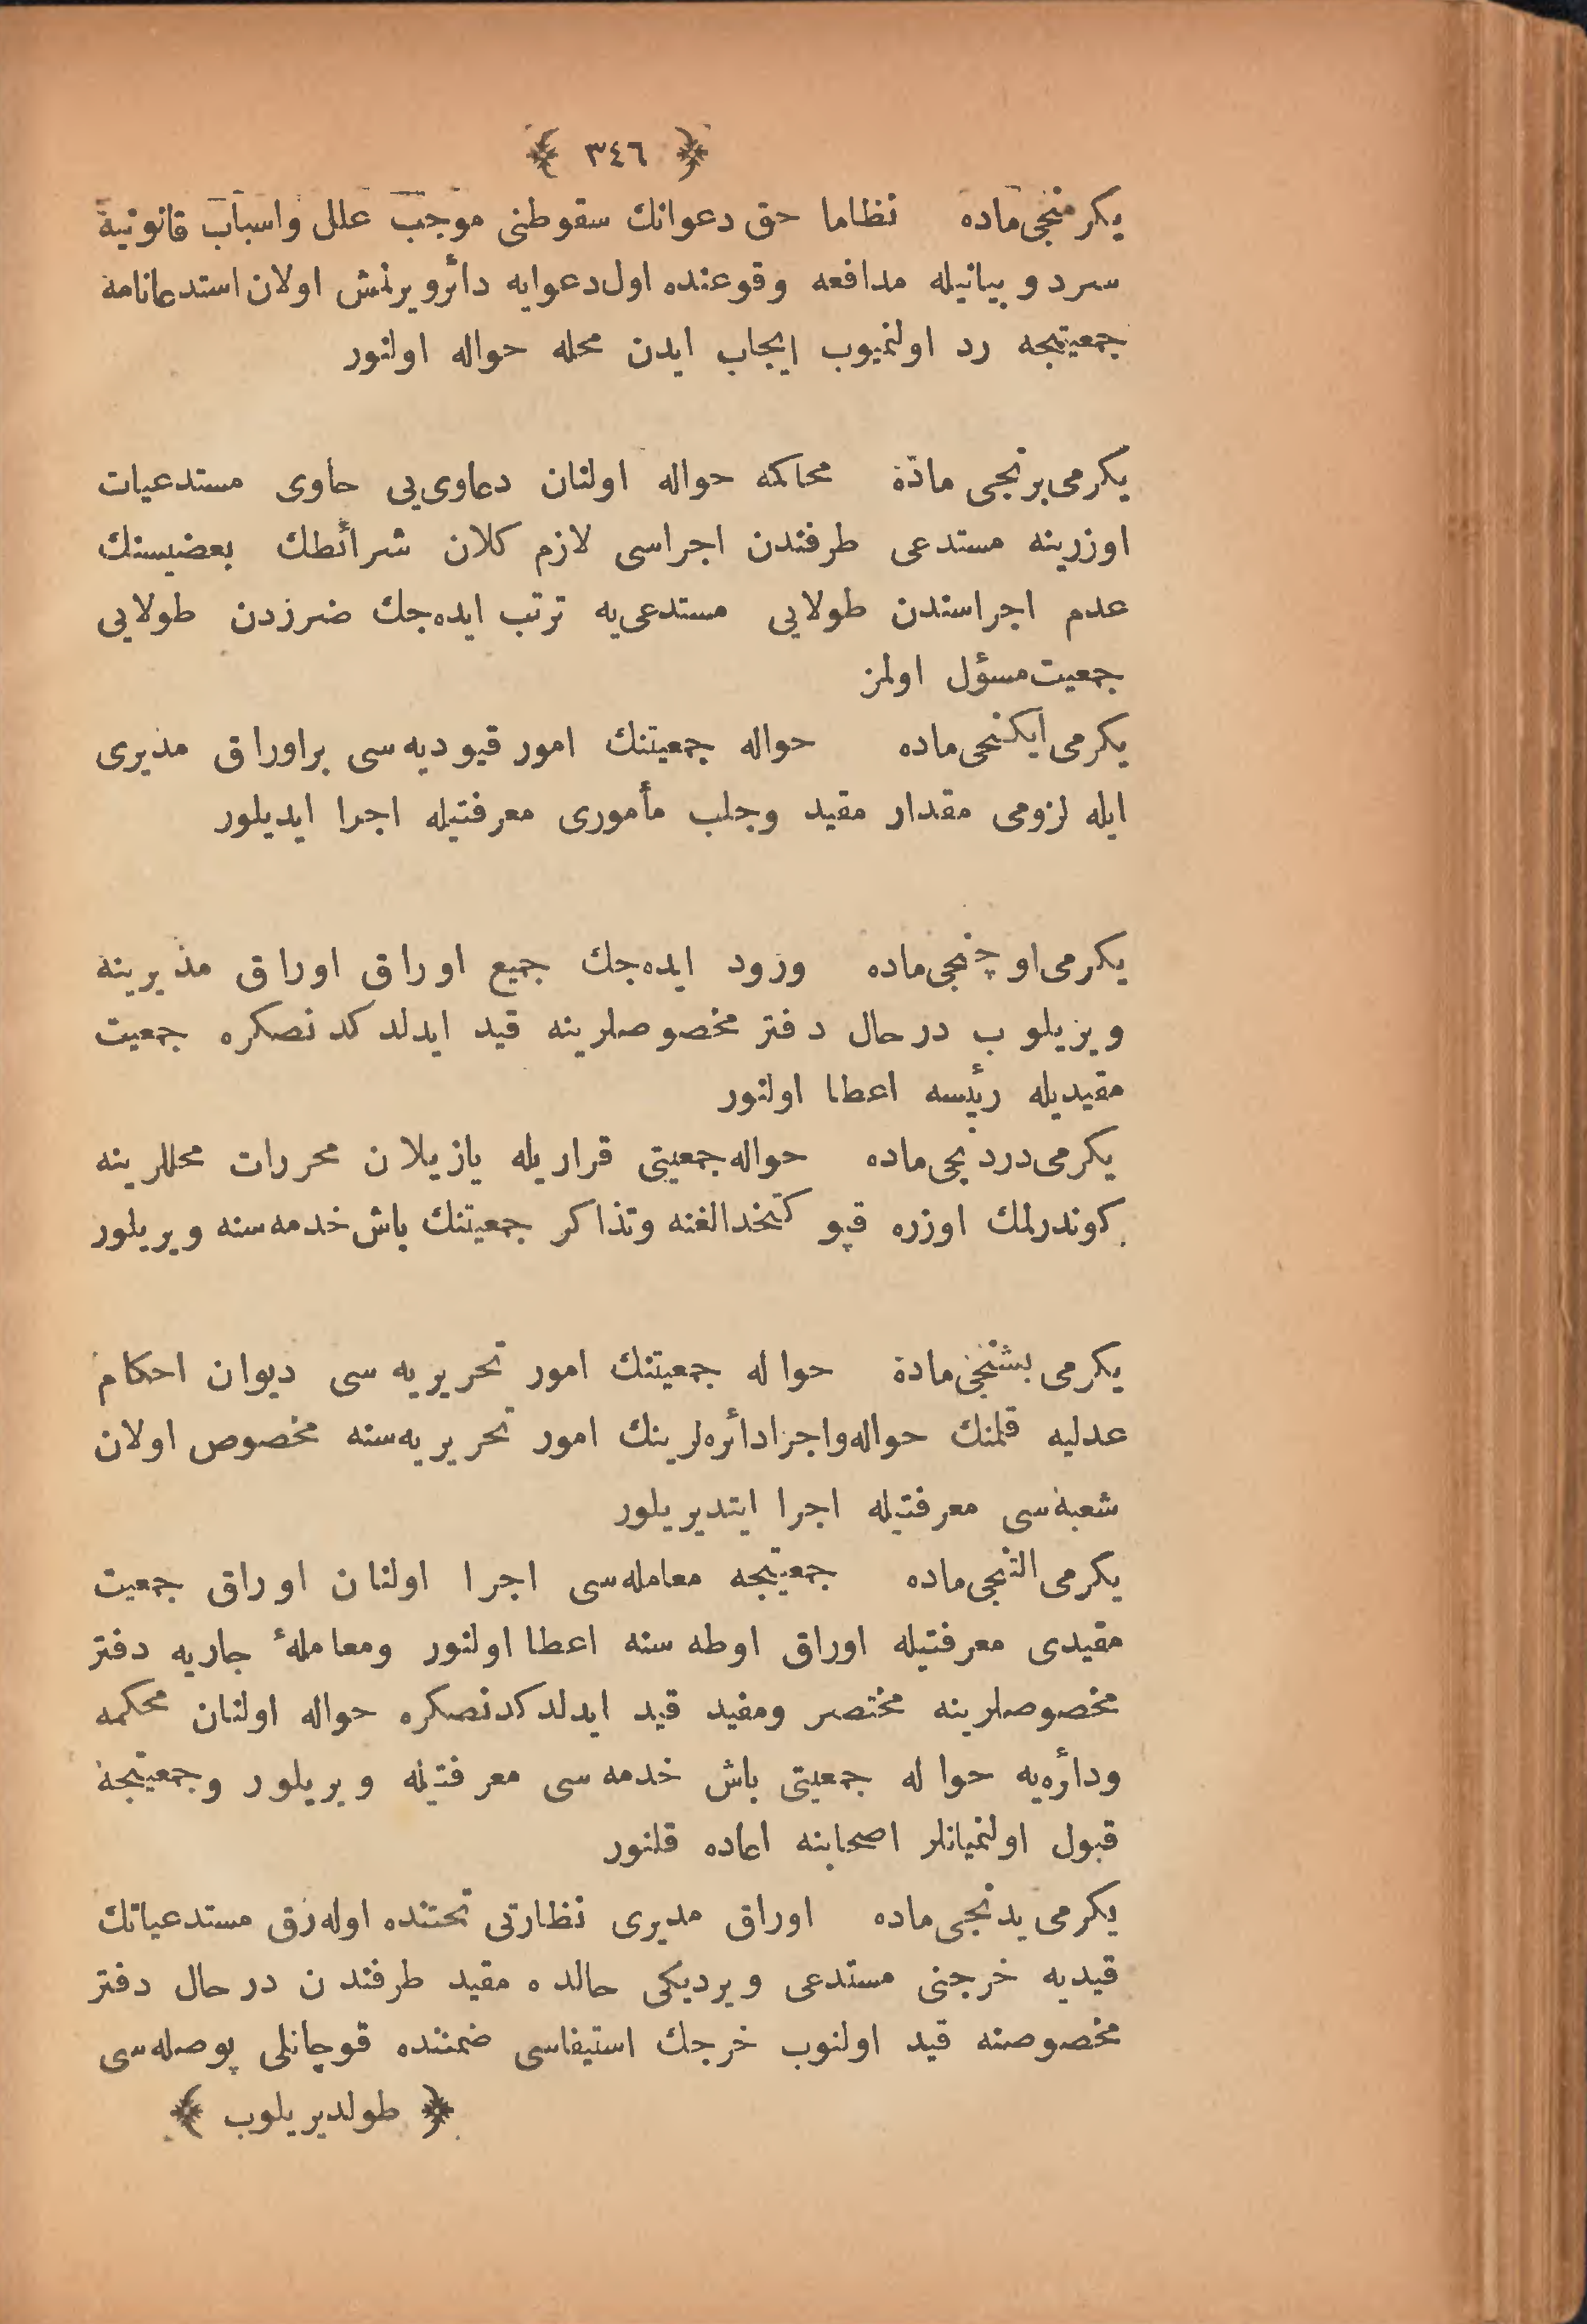 ﴿ ٣٤٦ ﴾
يكرمنجی ماده نظاما حق دعوانك سقوطنی موجب علل واسباب قانونیه
سرد و بیانیله مدافعه وقوعنده اول دعوایه دائر ویرلمش اولان استدعانامه
جمعیتجه رد اولنمیوب ایجاب ایدن محله حواله اولنور
یكرمی برنجی ماده محاكمه حواله اولنان دعاوی یی حاوی مستدعیات
اوزرینه مستدعی طرفندن اجراسی لازم كلان شرائطك بعضیسنك
عدم اجراسندن طولایی مستدعی یه ترتب ایده جك ضرردن طولایی
جمعیت مسؤل اولمز
یكرمی ایكنجی ماده حواله جمعیتنك امور قیودیه سی براوراق مدیری
ایله لزومی مقدار مقید وجلب مأموری معرفتیله اجرا ایدیلور
یكرمی اوچنجی ماده ورود ایده جك جمیع اوراق اوراق مدیرینه
ویریلوب درحال دفتر مخصوصلرینه قید ایدلدكدنصكره جمعیت
مقیدیله رئیسه اعطا اولنور
یكرمی دردنجی ماده حواله جمعیتی قراریله یازیلان محررات محللرینه
كوندرلمك اوزره قپو كتخدالغنه وتذاكر جمعیتنك باش خدمه سنه ویریلور
یكرمی بشنجی ماده حواله جمعیتنك امور تحریریه سی دیوان احكام
عدلیه قلمنك حواله واجرا دائره لرینك امور تحریریه سنه مخصوص اولان
شعبه سی معرفتیله اجرا ایتدیریلور
یكرمی التنجی ماده جمعیتجه معامله سی اجرا اولنان اوراق جمعیت
مقیدی معرفتیله اوراق اوطه سنه اعطا اولنور ومعاملهٔ جاریه دفتر
مخصوصلرینه مختصر ومفید قید ایدلدكدنصكره حواله اولنان محكمه
ودائره یه حواله جمعیتی باش خدمه سی معرفتیله ویریلور وجمعیتجه
قبول اولنمیانلر اصحابنه اعاده قلنور
یكرمی یدنجی ماده اوراق مدیری نظارتی تحتنده اوله رق مستدعیاتك
قیدیه خرجنی مستدعی ویردیكی حالده مقید طرفندن درحال دفتر
مخصوصنه قید اولنوب خرجك استیفاسی ضمننده قوچانلی پوصله سی
﴿ طولدیریلوب ﴾